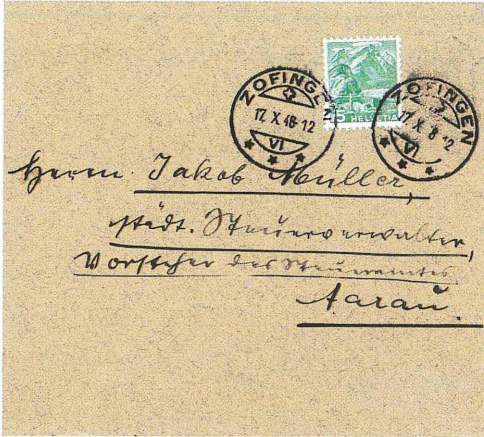 ZOFINGEN
17. X. 48-12
VI
5 HELVETIA
ZOFINGEN
17. X. 8 12
VI
Herrn Jakob Müller,
städt. Steuerverwalter,
Vorsteher des Steueramtes
Aarau.